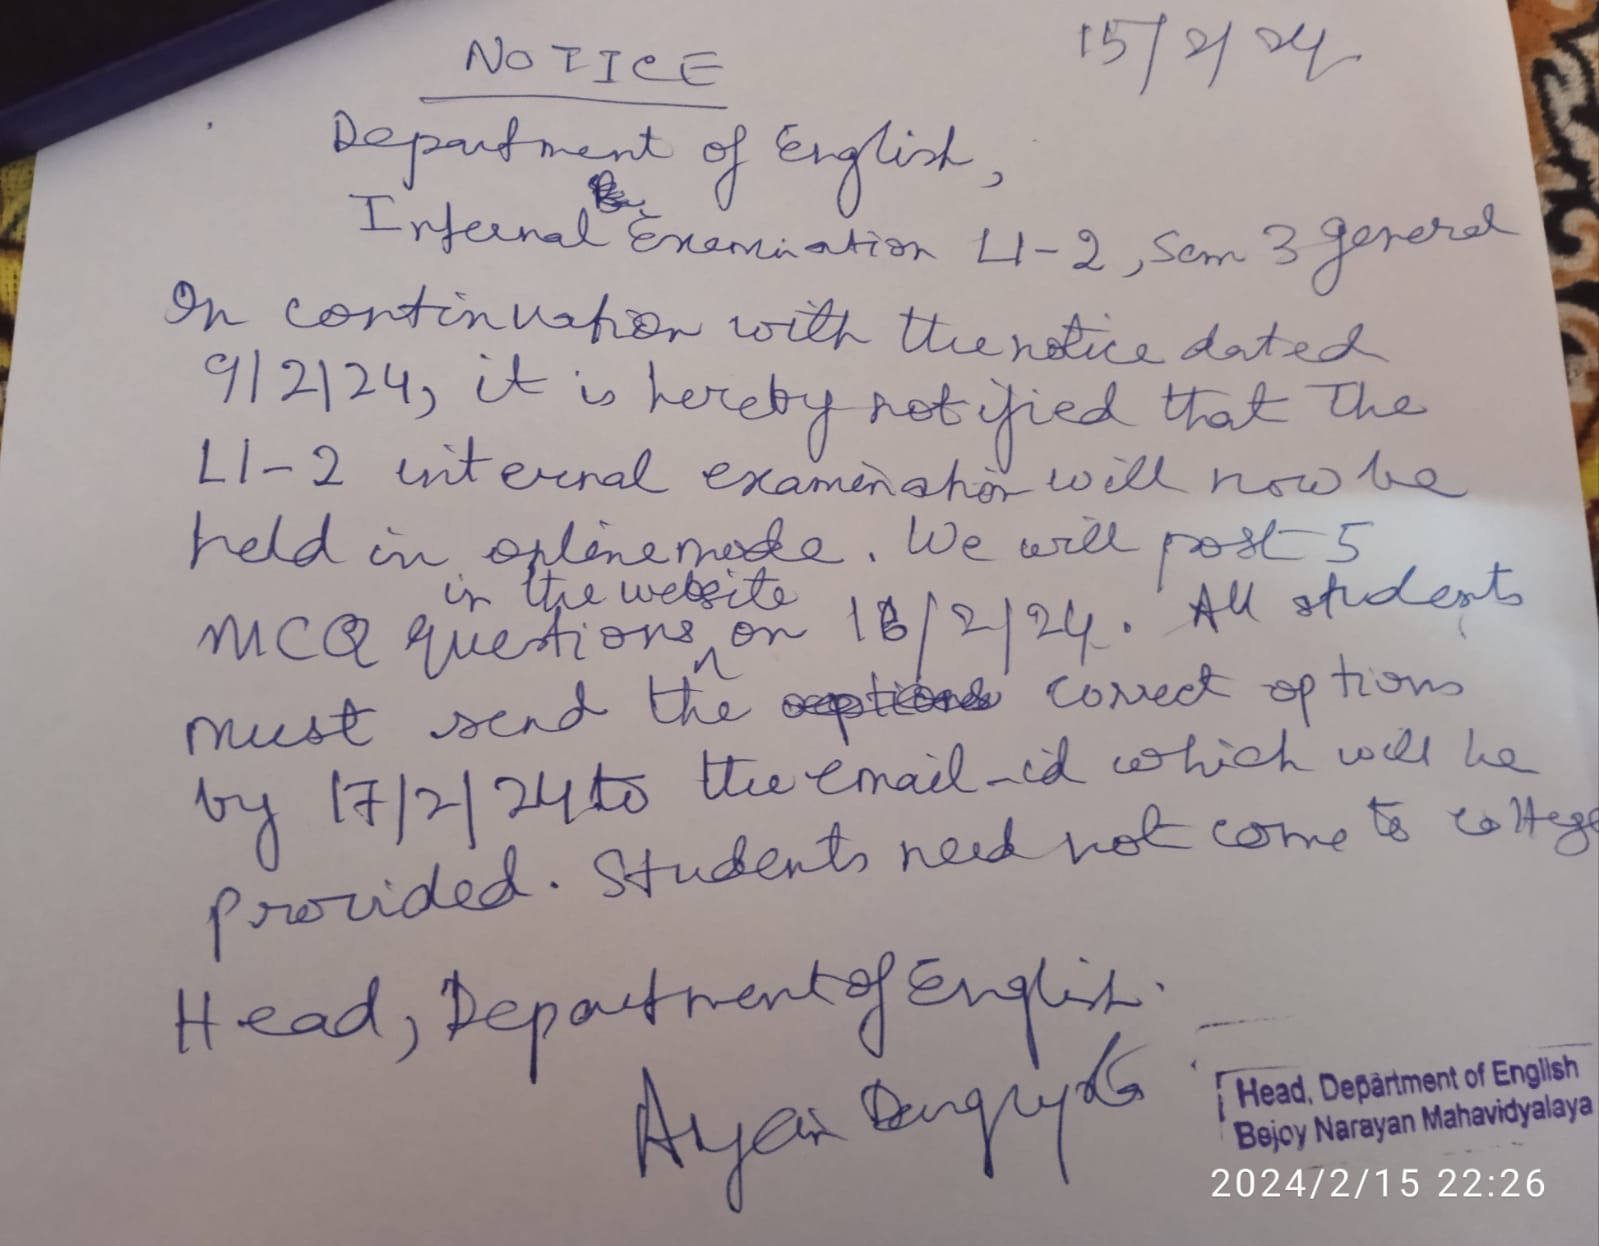 NOTICE
15/2/24
Department of English,
Internal Examination L1-2, Sem 3 general
In continuation with the notice dated
9/2/24, it is hereby notified that the
L1-2 internal examination will now be
held in online mode. We will post 5
MCQ questions in the website on 16/2/24. All students
must send the correct options
by 17/2/24 to the email-id which will be
provided. Students need not come to college
Head, Department of English.
Head, Department of English
Bejoy Narayan Mahavidyalaya
2024/2/15 22:26